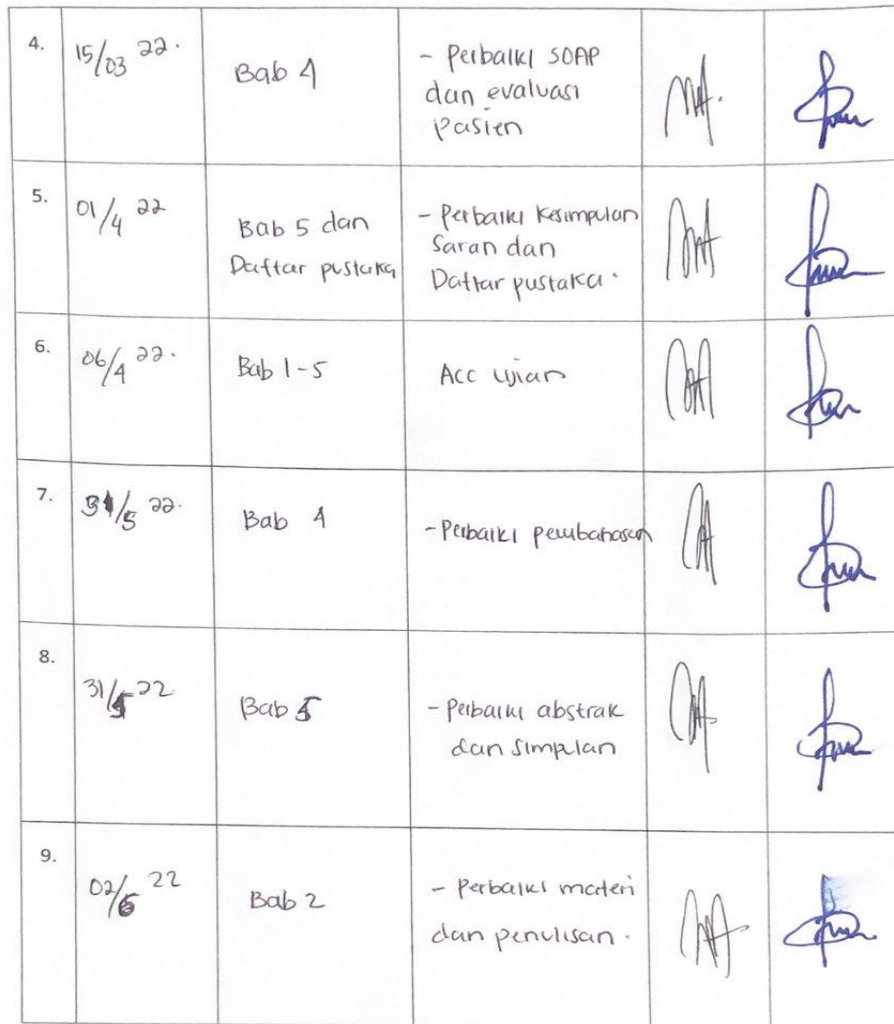 4.
15/03 22.
Bab 4
- Perbaiki SOAP
dan evaluasi
pasien
5.
01/4 22
Bab 5 dan
Daftar pustaka
- Perbaiki Kesimpulan
Saran dan
Daftar pustaka.
6.
06/4 22.
Bab 1-5
Acc ujian
7.
31/5 22.
Bab 4
- Perbaiki pembahasan
8.
31/5 22
Bab 5
- Perbaiki abstrak
dan simpulan
9.
02/6 22
Bab 2
- Perbaiki materi
dan penulisan.